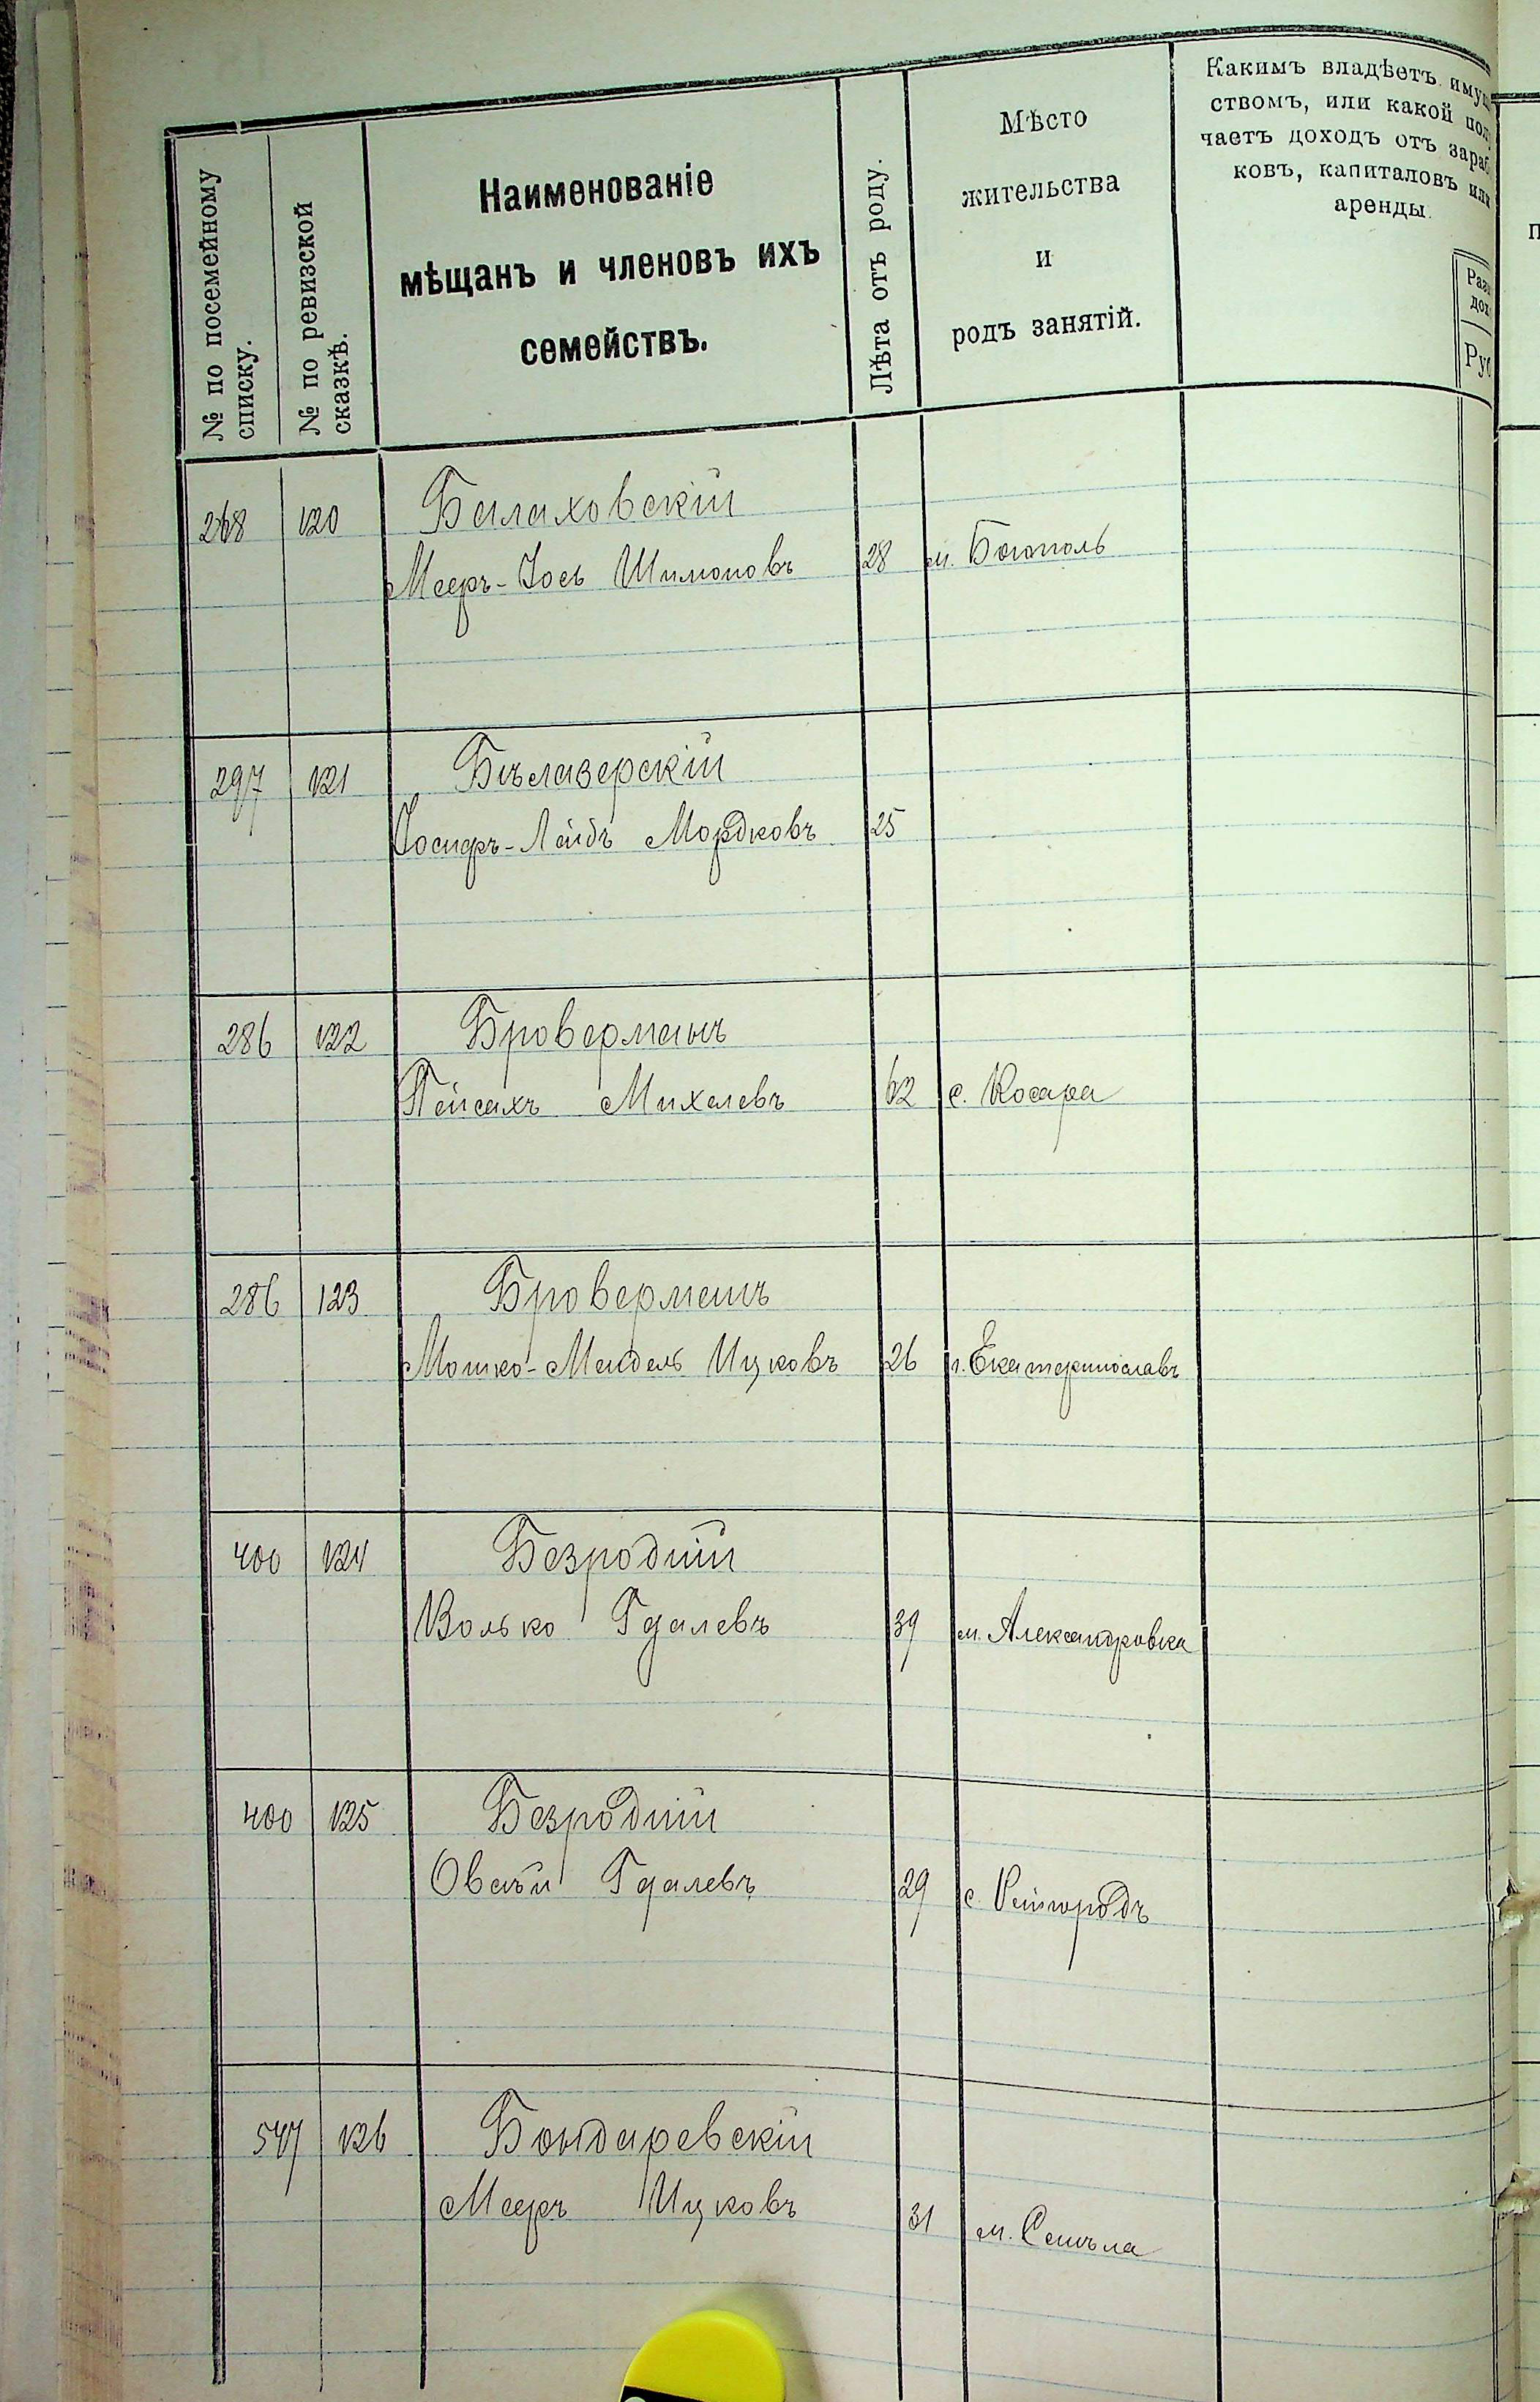 № по посемейному
списку.
№ по ревизской
сказкѣ.
Наименованіе
мѣщанъ и членовъ ихъ
семействъ.
Лѣта отъ роду.
Мѣсто
жительства
и
родъ занятій.
Какимъ владѣетъ имущ
ствомъ, или какой пол
чаетъ доходъ отъ зараб
ковъ, капиталовъ или
аренды.
Разм
дох
Руб
268 120 Балаховскій
Мееръ-Іось Шимоновъ 28 м. Богополь
297 121 Бѣлазерскій
Іосифъ-Лейбъ Мордковъ 25
286 122 Броверманъ
Пейсахъ Михелевъ 62 с. Косара
286 123 Броверманъ
Мошко-Мендель Ицковъ 26 г. Екатеринославъ
400 124 Безродній
Волько Гдалевъ 39 м. Александровка
400 125 Безродній
Овсѣй Гдалевъ 29 с. Ренгородъ
547 126 Бондаревскій
Мееръ Ицковъ 31 м. Смѣла